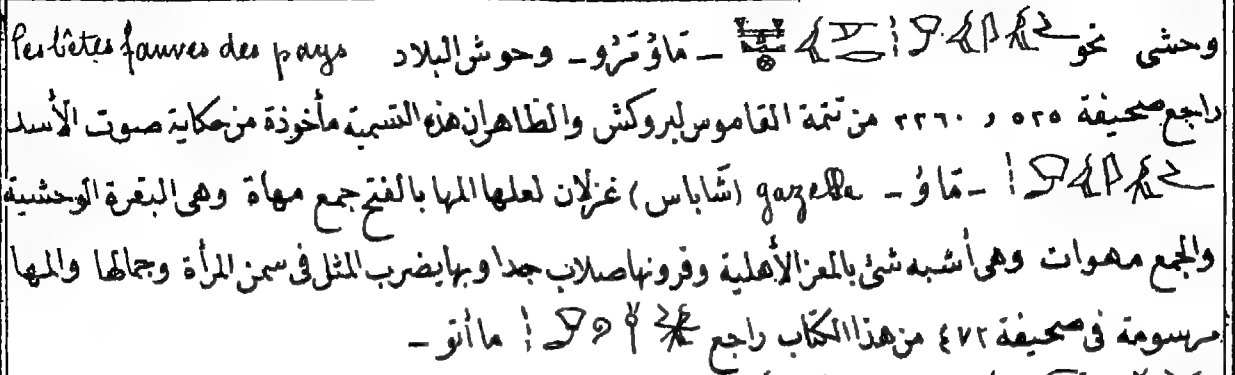 وحشى نحو ـ مَاوُ مَرُو ـ وحوش البلاد Les bêtes fauves des pays
راجع صحيفة ٥٢٥ و ٢٢٦٠ من تتمة القاموس لبروكش والظاهر ان هذه التسمية مأخوذة من حكاية صوت الأسد
ـ مَاوُ ـ gazelle (شاباس) غزلان لعلها المها بالفتح جمع مهاة وهى البقرة الوحشية
والجمع مهوات وهى أشبه شئ بالمعز الأهلية وقرونها صلاب جدا وبها يضرب المثل فى سمن المرأة وجمالها والمها
مرسومة فى صحيفة ٤٧٢ من هذا الكتاب راجع ماأتو ـ